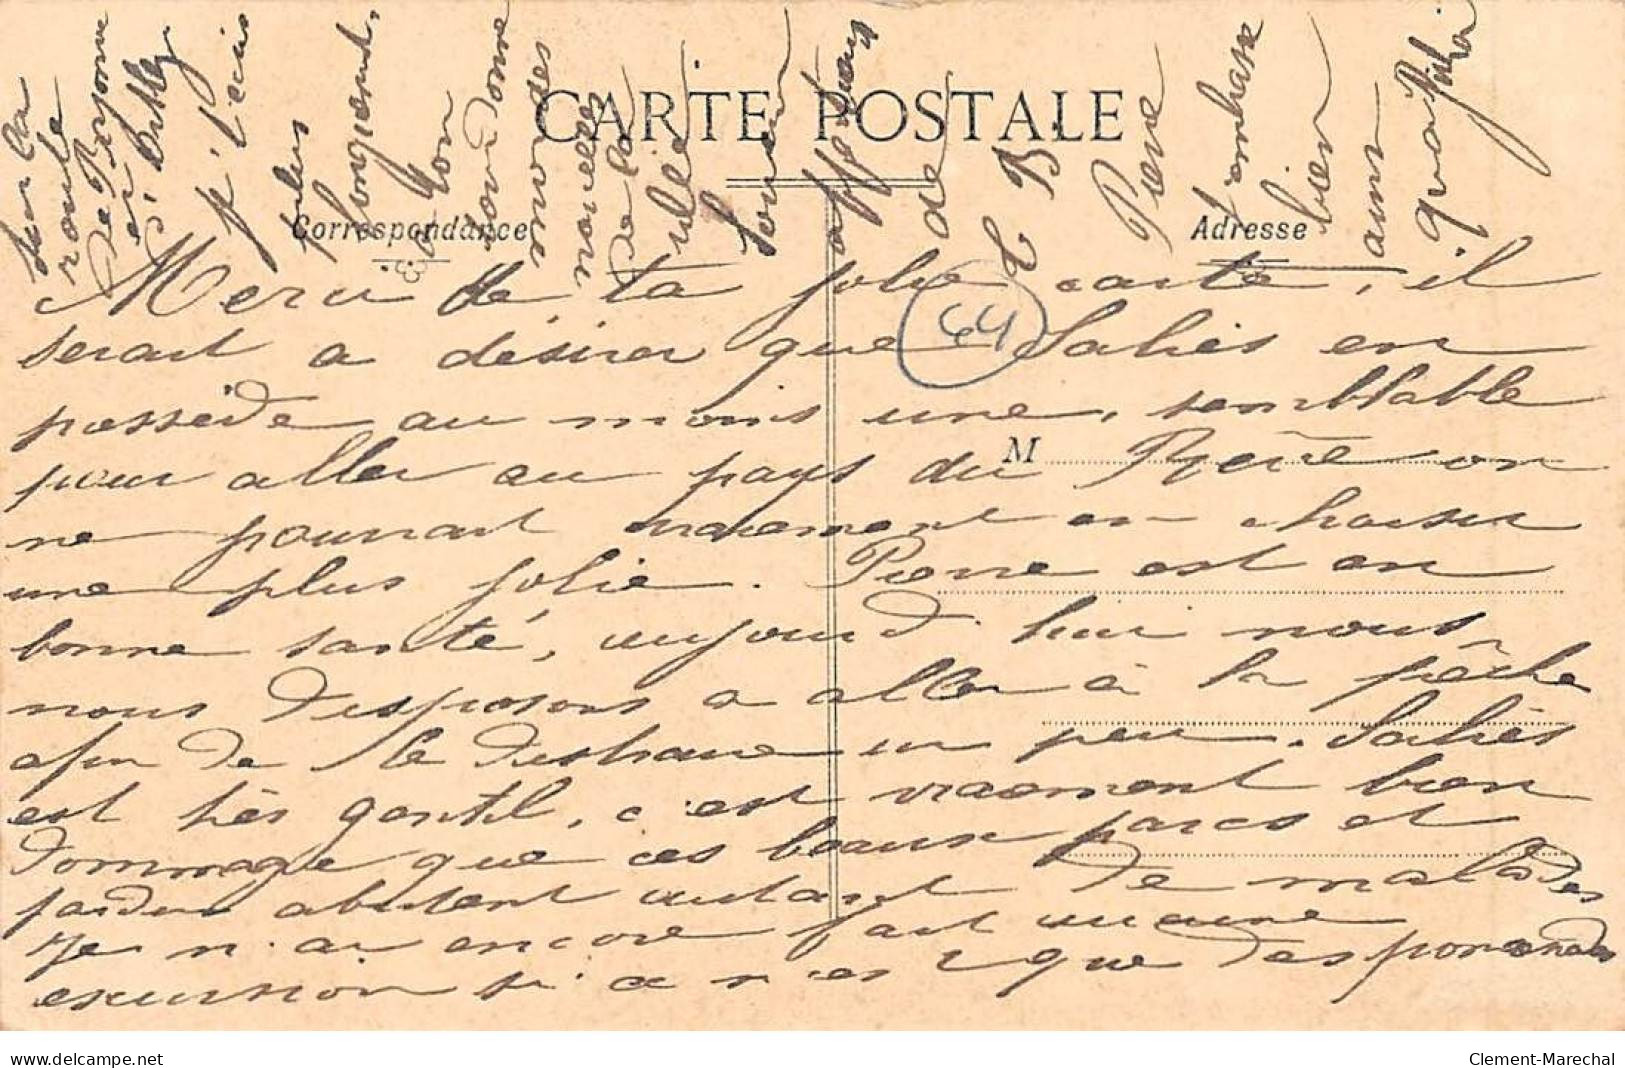 CARTE POSTALE
Correspondance
Adresse
M
44
Merci de ta jolie carte, il
serait a désirer que Salies en
possède au moins une, semblable
pour aller au pays du Rêve on
ne pourrait vraiement en choisir
une plus jolie. Pierre est en
bonne santé, aujourd'hui nous
nous disposons a aller à la pêche
afin de le distraire un peu. Salies
est très gentil, c'est vraiement bien
dommage que ces beaux parcs et
jardins abritent autant de malades
Je n'ai encore fait aucune
excursion si ce n'est que des promenades
sur la
route
de Bayonne
et
je t'écris
plus
longuement,
mon
nous donne
de bonnes
nouvelles
de la
Souvenirs
affectueux
de
T B
Pierre
t'embrasse
bien
ainsi
qu'a
www.delcampe.net
Clement-Marechal